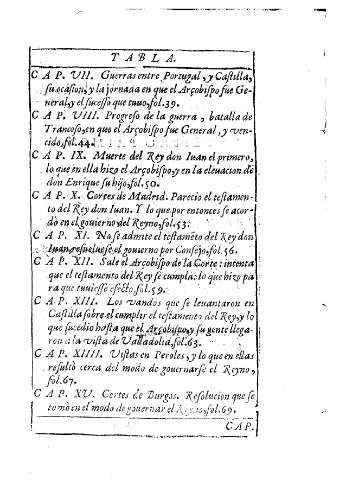 TABLA.
CAP. VII. Guerras entre Portugal, y Castilla,
su ocasion, y la jornada en que el Arçobispo fue Ge-
neral, y el sucesso que tuuo, fol. 39.
CAP. VIII. Progreso de la guerra, batalla de
Trancoso, en que el Arçobispo fue General, y ven-
cido, fol. 44.
CAP. IX. Muerte del Rey don Iuan el primero,
lo que en ella hizo el Arçobispo, y en la eleuacion de
don Enrique su hijo, fol. 50.
CAP. X. Cortes de Madrid. Parecio el testamen-
to del Rey don Iuan. Y lo que por entonces se acor-
dò en el gouierno del Reyno, fol. 53.
CAP. XI. No se admite el testamẽto del Rey don
Iuan, resueluese el gouerno por Consejo, fol. 56.
CAP. XII. Sale el Arçobispo de la Corte: intenta
que el testamento del Rey se cumpla: lo que hizo pa
ra que tuuiesse efecto, fol. 59.
CAP. XIII. Los vandos que se leuantaron en
Castilla sobre el cumplir el testamento del Rey, y lo
que sucedio hasta que el Arçobispo, y su gente llega-
ron a la vista de Valladolid, fol. 63.
CAP. XIIII. Vistas en Peroles, y lo que en ellas
resultò cerca del modo de gouernarse el Reyno,
fol. 67.
CAP. XV. Cortes de Burgos. Resolucion que se
tomò en el modo de gouernar el Reyno, fol. 69.
CAP.